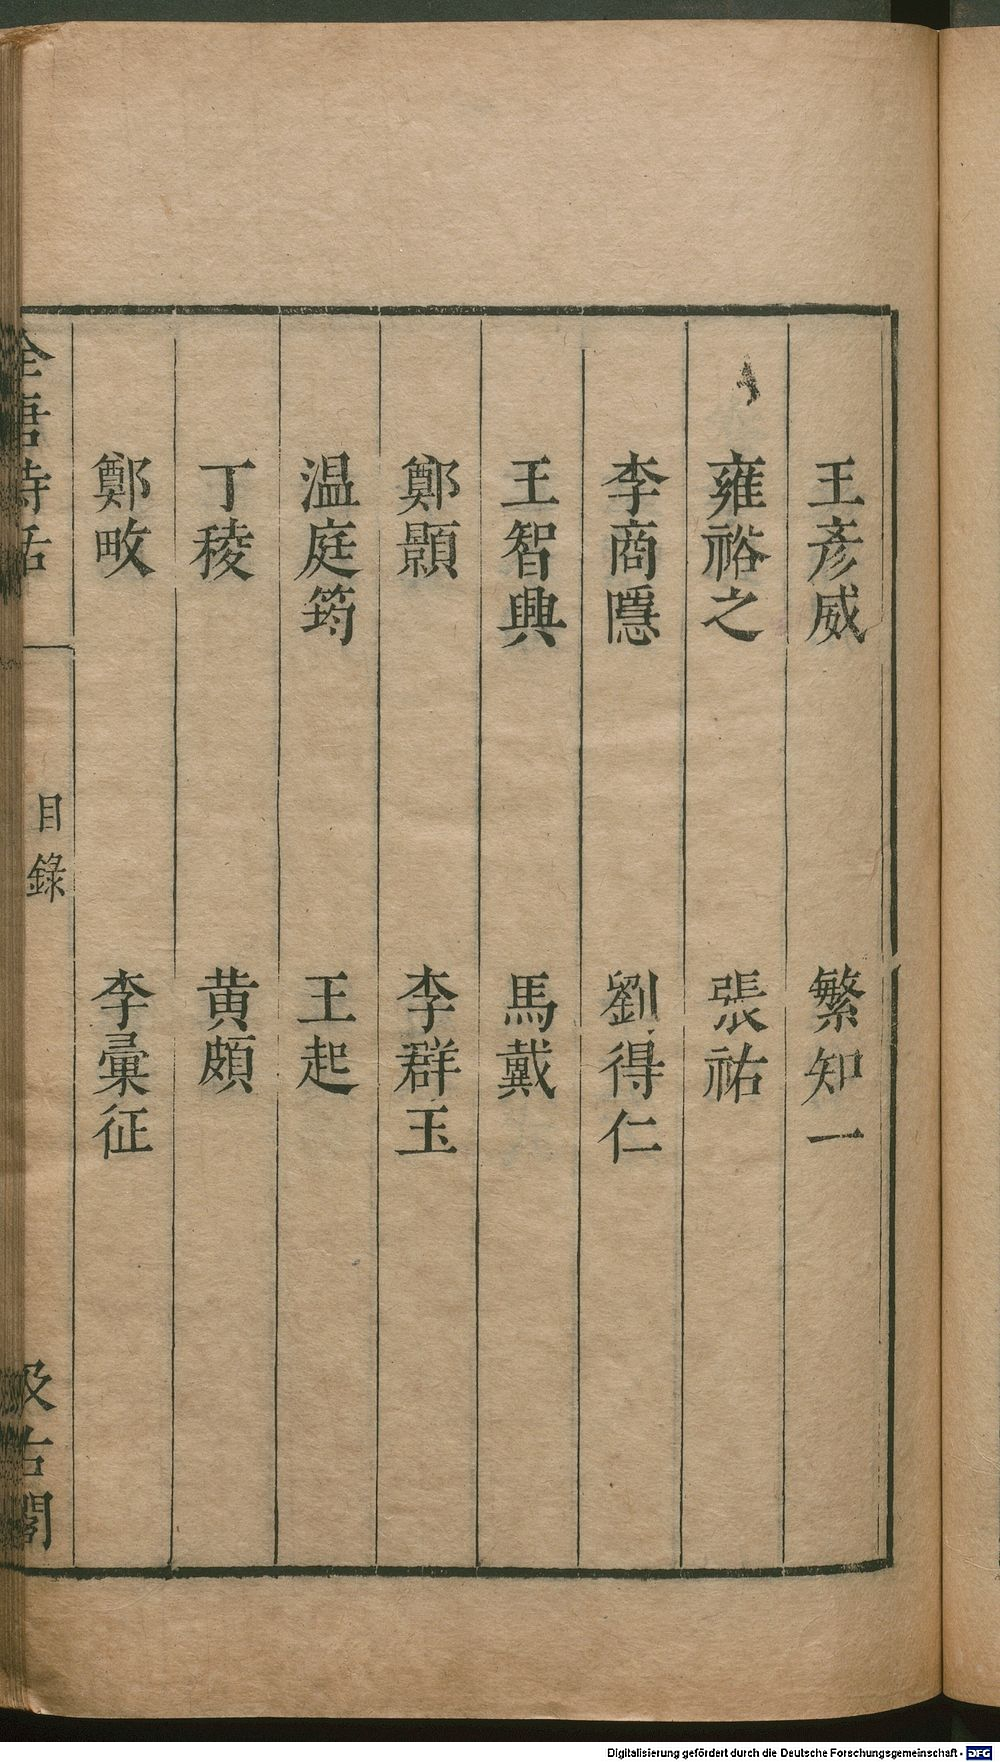 王彥威 繁知一
雍裕之 張祐
李商隱 劉得仁
王智興 馬戴
鄭顥 李群玉
温庭筠 王起
丁稜 黄頗
鄭畋 李彙征
全唐詩話 目錄 汲古閣
Digitalisierung gefördert durch die Deutsche Forschungsgemeinschaft - DFG